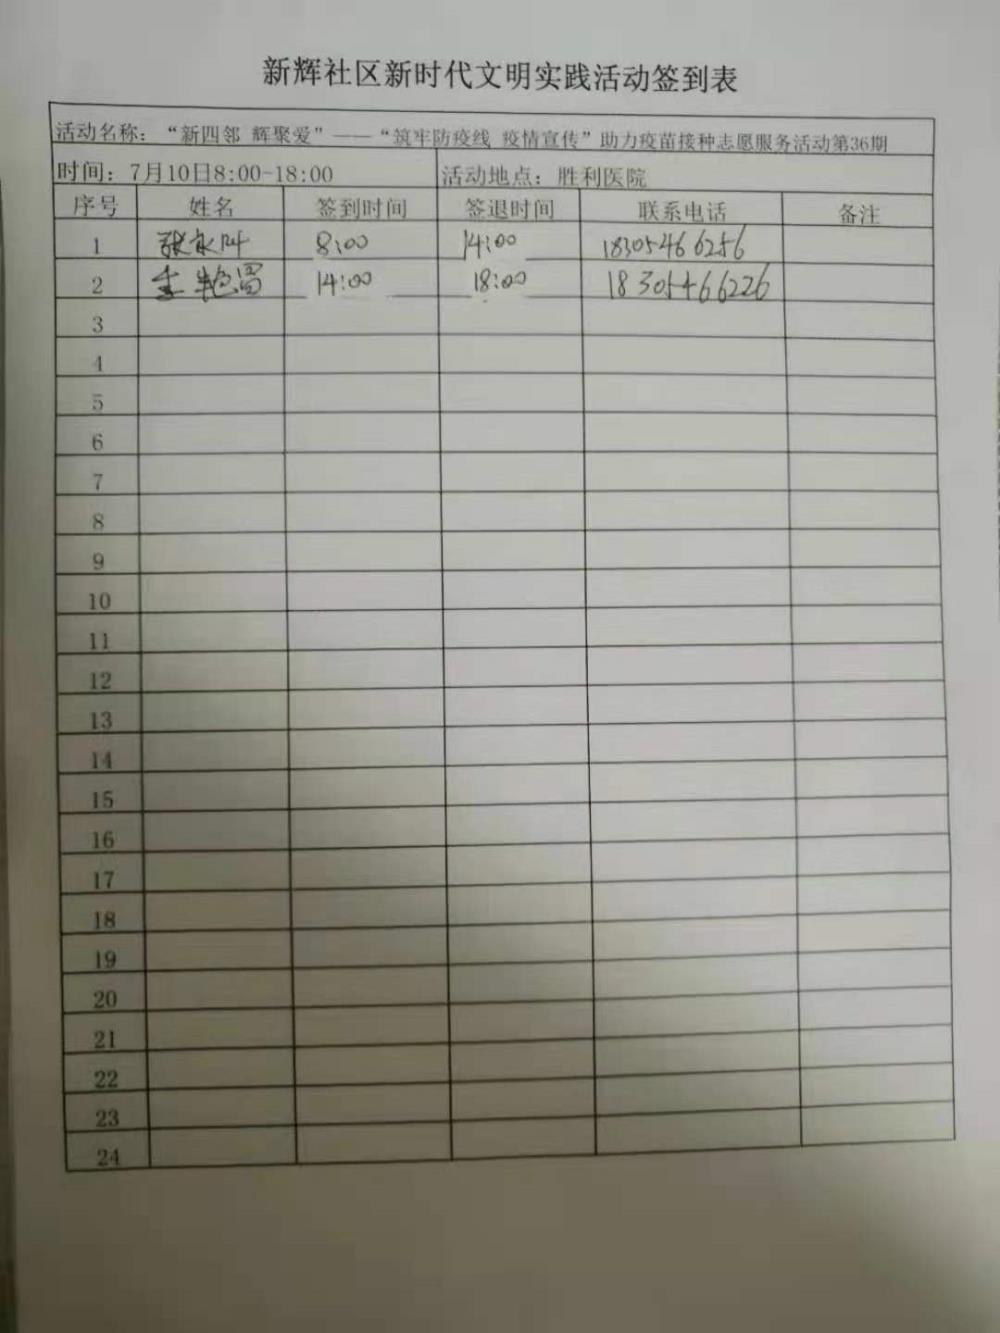 新辉社区新时代文明实践活动签到表
活动名称：“新四邻 辉聚爱”——“筑牢防疫线 疫情宣传”助力疫苗接种志愿服务活动第36期
时间：7月10日8:00-18:00 活动地点：胜利医院
序号 姓名 签到时间 签退时间 联系电话 备注
1 张 8:00 14:00 18305466256
2 李艳 14:00 18:00 18305466226
3
4
5
6
7
8
9
10
11
12
13
14
15
16
17
18
19
20
21
22
23
24